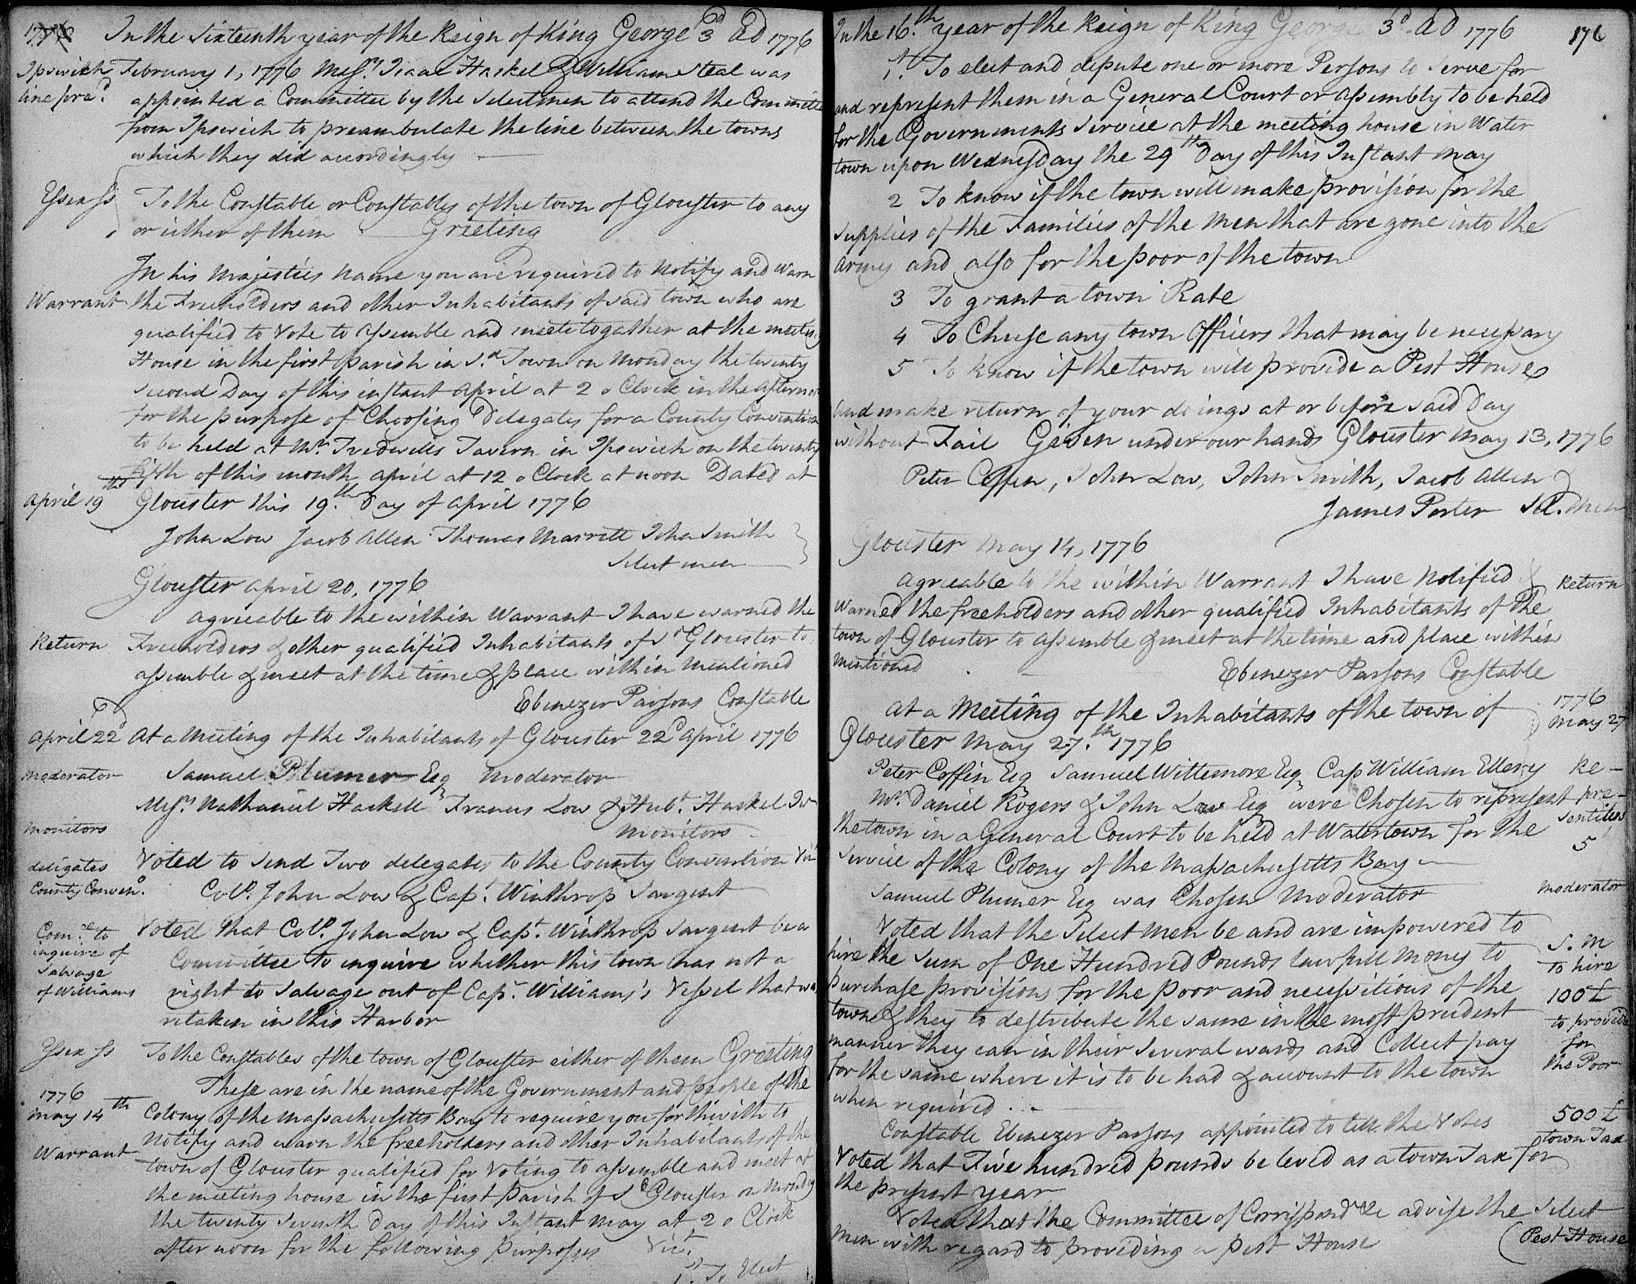 1776 In the Sixteenth year of the Reign of King George 3d AD 1776
Ipswich February 1, 1776 Messrs Isaac Haskel & William Steal was
line pred. appointed a Committee by the Selectmen to attend the Committee
from Ipswich to preambulate the line between the towns
which they did accordingly
Essex ss To the Constable or Constables of the town of Glouster to any
or either of them Greeting
In his Majesties Name you are required to Notify and Warn
Warrant the Freeholders and other Inhabitants of said town who are
qualified to Vote to assemble and meete togather at the meeting
House in the first Parish in sd. Town on Monday the twenty
second Day of this instant April at 2 o Clock in the afternoon
for the purpose of Choosing Delegates for a County Convention
to be held at Mr. Tredwells Tavern in Ipswich on the twenty
fifth of this month april at 12 o Clock at noon Dated at
April 19th Glouster this 19.th Day of April 1776
John Low Jacob Allen Thomas Marrett John Smith
Select men
Glouster april 20, 1776
Agreeable to the within Warrant I have warned the
Return Freeholders & other qualified Inhabitants of sd Glouster to
assemble & meet at the time & place within mentioned
Ebenezer Parsons Constable
April 22d At a Meeting of the Inhabitants of Glouster 22d April 1776
Moderator Samuel Plumer Esq Moderator
Messrs Nathaniel Haskell Francis Low & Hubt. Haskel Jur
monitors
Monitors
deligates Voted to send Two delegates to the County Convention Viz
County Conven. Colo. John Low & Capt. Winthrop Sargent
Comtee to Voted that Colo. John Low & Capt. Winthrop Sargent be a
inquire of Committee to inquire whether this town has not a
Salvage
of Williams right to Salvage out of Capt. Williams's Vessel that was
retaken in this Harbor
Essex ss To the Constables of the town of Glouster either of them Greeting
These are in the name of the Government and people of the
1776
May 14th Colony of the Massachusetts Bay to require you forthwith to
Notify and warn the freeholders and other Inhabitants of the
Warrant town of Glouster qualified for Voting to assemble and meet at
the meeting house in the first parish of sd Glouster on Monday
the twenty seventh day of this Instant May at 2 o Clock
afternoon for the following purposes Vizt.
1st. To Elect
In the 16.th year of the Reign of King George 3d. AD 1776 176
1st. To elect and depute one or more Persons to serve for
and represent them in a General Court or assembly to be held
for the Governments service at the meeting house in Water
town upon Wednesday the 29th Day of this Instant may
2 To know if the town will make provision for the
supplies of the Families of the Men that are gone into the
Army and also for the poor of the town
3 To grant a town Rate
4 To Chuse any town Officers that may be necessary
5 To know if the town will provide a Pest House
And make return of your doings at or before said Day
without Fail Given under our hands Glouster May 13, 1776
Peter Coffin, John Low, John Smith, Jacob Allen
James Porter Sel. men
Glouster May 14, 1776
Agreeable to the within Warrant I have Notified & Return
Warned the freeholders and other qualified Inhabitants of the
town of Glouster to assemble & meet at the time and place within
mentioned Ebenezer Parsons Constable
At a Meeting of the Inhabitants of the town of 1776
Glouster May 27.th 1776 May 27
Peter Coffin Esq Samuel Wittemore Esq Cap William Ellery Re-
Mr. Daniel Rogers & John Low Esq were Chosen to represent pre-
the town in a General Court to be held at Watertown for the sentitives
service of the Colony of the Massachusetts Bay 5
Samuel Plumer Esq was Chosen Moderator Moderator
Voted that the Select men be and are impowered to
hire the sum of One Hundred Pounds lawfull money to S. M
purchase provisions for the poor and necessitious of the to hire
town & they to destribute the same in the most prudent 100£
manner they can in their several wards and Collect pay to provide
for the same where it is to be had & account to the town for
when required the Poor
Constable Ebenezer Parsons appointed to tell the Votes 500£
Voted that Five hundred pounds be levied as a town Tax for town Tax
the present year
Voted that the Committee of Corrispondce advise the Select
men with regard to providing a pest House (Pest House